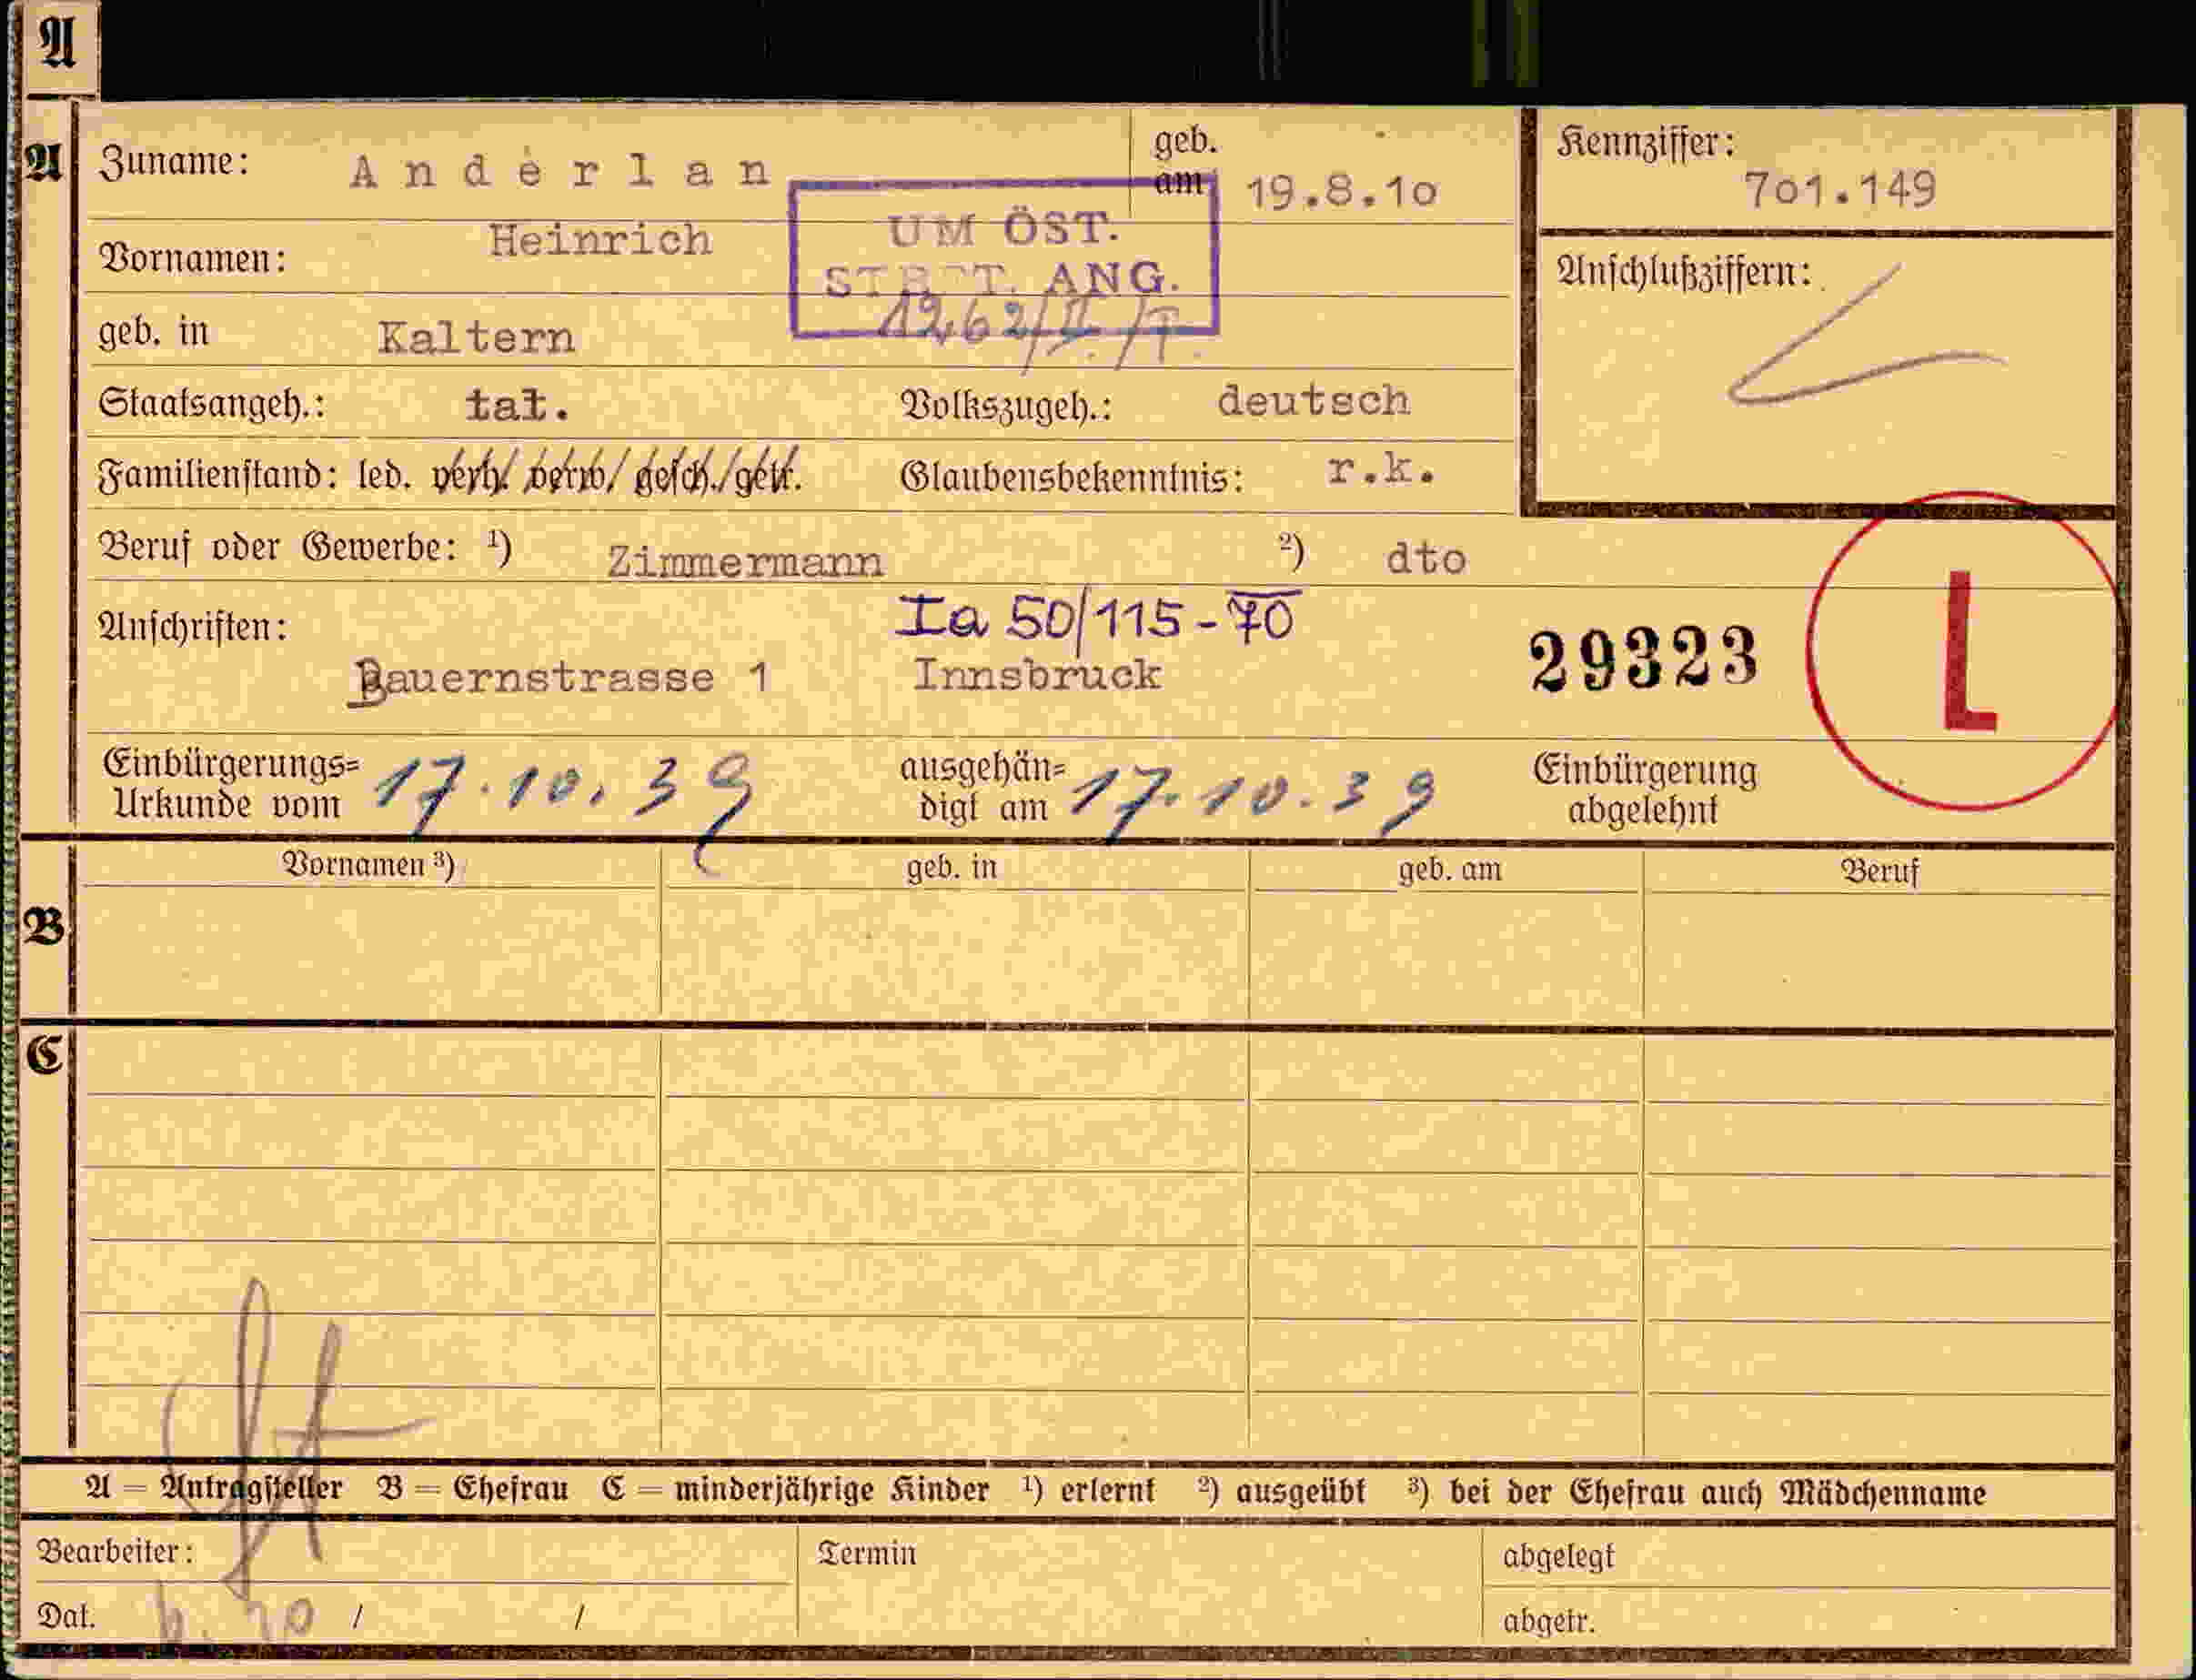 A
A Zuname: Anderlan geb. am 19.8.1o Kennziffer: 7o1.149
Vornamen: Heinrich UM ÖST. Anschlußziffern:
STAAT. ANG.
geb. in Kaltern 1262/II/T.
Staatsangeh.: tat. Volkszugeh.: deutsch
Familienstand: led. verh/ verw/ gesch./getr. Glaubensbekenntnis: r.k.
Beruf oder Gewerbe: ¹) Zimmermann ²) dto
Anschriften: Ia 50/115-70
Bauernstrasse 1 Innsbruck 29323 L
Einbürgerungs= ausgehän= Einbürgerung
Urkunde vom 17.10.39 digt am 17.10.39 abgelehnt
Vornamen ³) geb. in geb. am Beruf
B
C
A = Antragsteller B = Ehefrau C = minderjährige Kinder ¹) erlernt ²) ausgeübt ³) bei der Ehefrau auch Mädchenname
Bearbeiter: Termin abgelegt
Dat. / / abgetr.